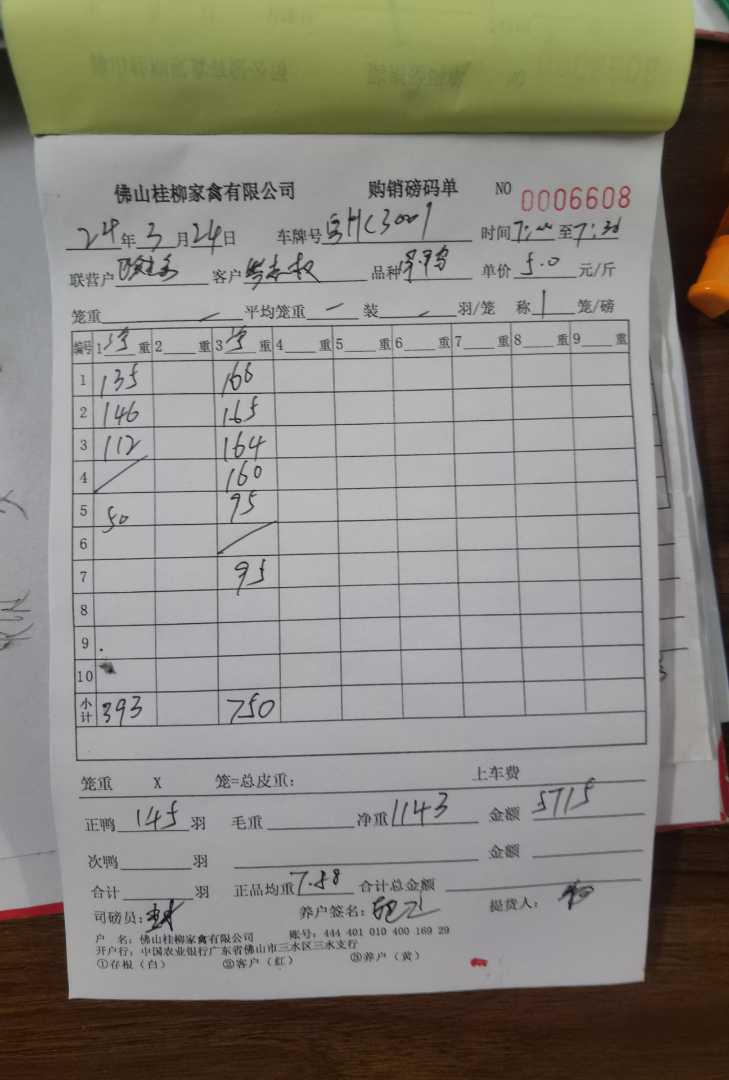 佛山桂柳家禽有限公司 购销磅码单 NO 0006608
24年3月24日 车牌号 HC3001 时间7:00至7:30
联营户 客户 品种 单价 5.0 元/斤
笼重 平均笼重 装 羽/笼 称 1 笼/磅
编号 1 重 2 重 3 重 4 重 5 重 6 重 7 重 8 重 9 重
1 135 166
2 146 165
3 112 164
4 160
5 50 95
6
7 95
8
9
10
小计 393 750
笼重 X 笼=总皮重: 上车费
正鸭 145 羽 毛重 净重 1143 金额 5715
次鸭 羽 金额
合计 羽 正品均重 7.88 合计总金额
司磅员: 养户签名: 提货人:
户 名: 佛山桂柳家禽有限公司 账号: 444 401 010 400 169 29
开户行: 中国农业银行广东省佛山市三水区三水支行
①存根（白） ②客户（红） ③养户（黄）